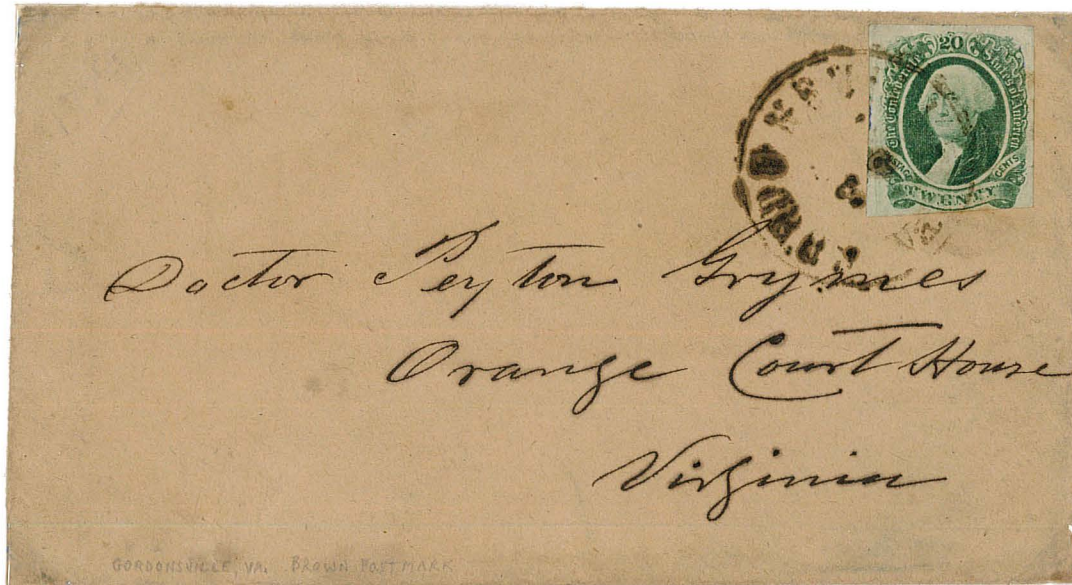 20
The Confederate States of America
POSTAGE CENTS
TWENTY
Doctor Peyton Grymes
Orange Court House
Virginia
GORDONSVILLE, VA. BROWN POSTMARK